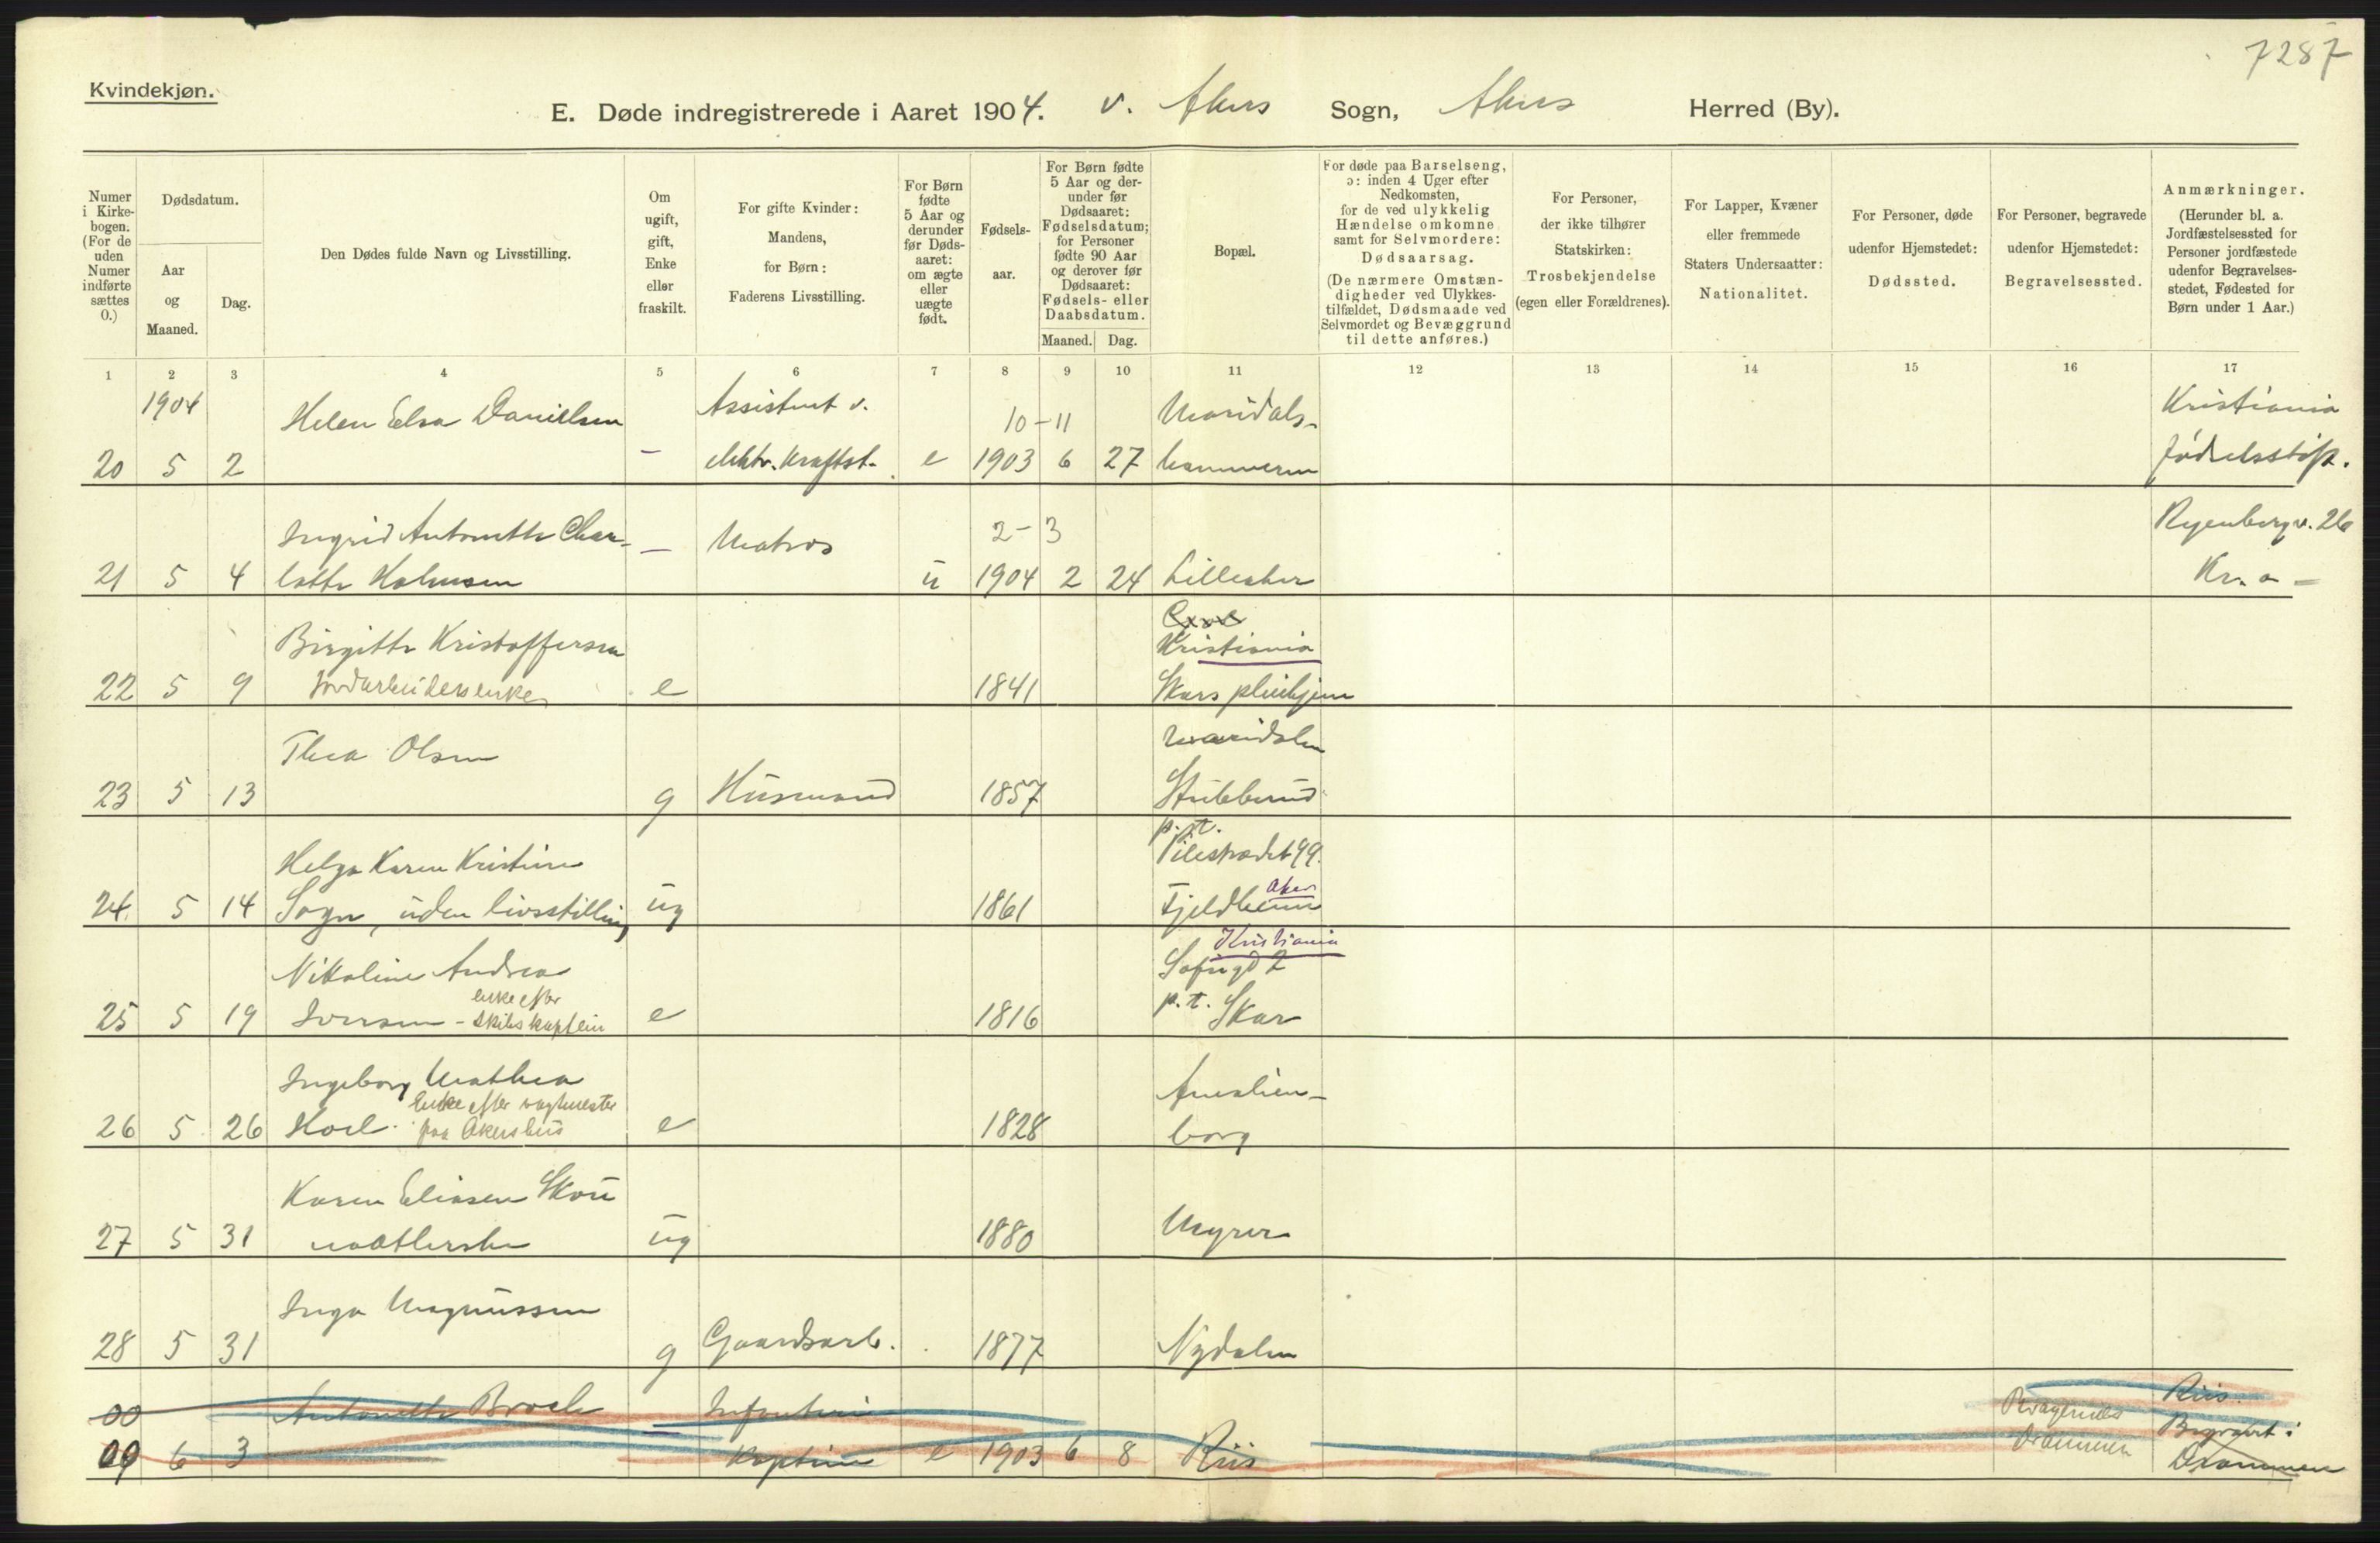 7287
Kvindekjøn.
E. Døde indregistrerede i Aaret 1904. v. Akers Sogn, Akers Herred (By).
Numer i Kirkebogen. (For de uden Numer indførte sættes 0.)
Dødsdatum.
Aar og Maaned.
Dag.
Den Dødes fulde Navn og Livsstilling.
Om ugift, gift, Enke eller fraskilt.
For gifte Kvinder: Mandens, for Børn: Faderens Livsstilling.
For Børn fødte 5 Aar og derunder før Dødsaaret: om ægte eller uægte født.
Fødselsaar.
For Børn fødte 5 Aar og derunder før Dødsaaret: Fødselsdatum; for Personer fødte 90 Aar og derover før Dødsaaret: Fødsels- eller Daabsdatum.
Maaned. Dag.
Bopæl.
For døde paa Barselseng, ɔ: inden 4 Uger efter Nedkomsten, for de ved ulykkelig Hændelse omkomne samt for Selvmordere: Dødsaarsag.
(De nærmere Omstændigheder ved Ulykkestilfældet, Dødsmaade ved Selvmordet og Bevæggrund til dette anføres.)
For Personer, der ikke tilhører Statskirken: Trosbekjendelse (egen eller Forældrenes).
For Lapper, Kvæner eller fremmede Staters Undersaatter: Nationalitet.
For Personer, døde udenfor Hjemstedet: Dødssted.
For Personer, begravede udenfor Hjemstedet: Begravelsessted.
Anmærkninger.
(Herunder bl. a. Jordfæstelsessted for Personer jordfæstede udenfor Begravelsesstedet, Fødested for Børn under 1 Aar.)
1 2 3 4 5 6 7 8 9 10 11 12 13 14 15 16 17
1904 Helen Elsa Danielsen Assistent v. 10-11 Maridals- Kristiania
20 5 2 — elektr. Kraftst. e 1903 6 27 hammeren fødselsstift.
Ingrid Antonette Char- — Matros 2-3 Ryenbergv. 26
21 5 4 lotte Halmsen u 1904 2 24 Lilleaker Kr.a -
Birgitte Kristoffersen Kristiania
22 5 9 Jordarbeidersenke e 1841 Skars pleiehjem
Thea Olsen Maridalen
23 5 13 g Husmand 1857 Stubberud
p.t.
Helga Karen Kristine Pilestrædet 99.
Aker
24. 5 14 Sogn, uden livsstilling ug 1861 Fjeldheim
Kristiania
Nikoline Andrea Sofiegd 2
enke efter
25 5 19 Iversen - Skibskaptein e 1816 p.t. Skar
Ingeborg Mathea Amalien-
Enke efter vagtmester
26 5 26 Hoel. paa Akershus e 1828 borg
Karen Eliasen Skou
27 5 31 modtlerske ug 1880 Myrer
Inga Magnussen
28 5 31 g Gaardsarb. 1877 Nydalen
00 Antonette Broch — Infanteri Bragernes Riis.
09 6 3 Kaptein e 1903 6 8 Riis Drammen Begravet i
Drammen